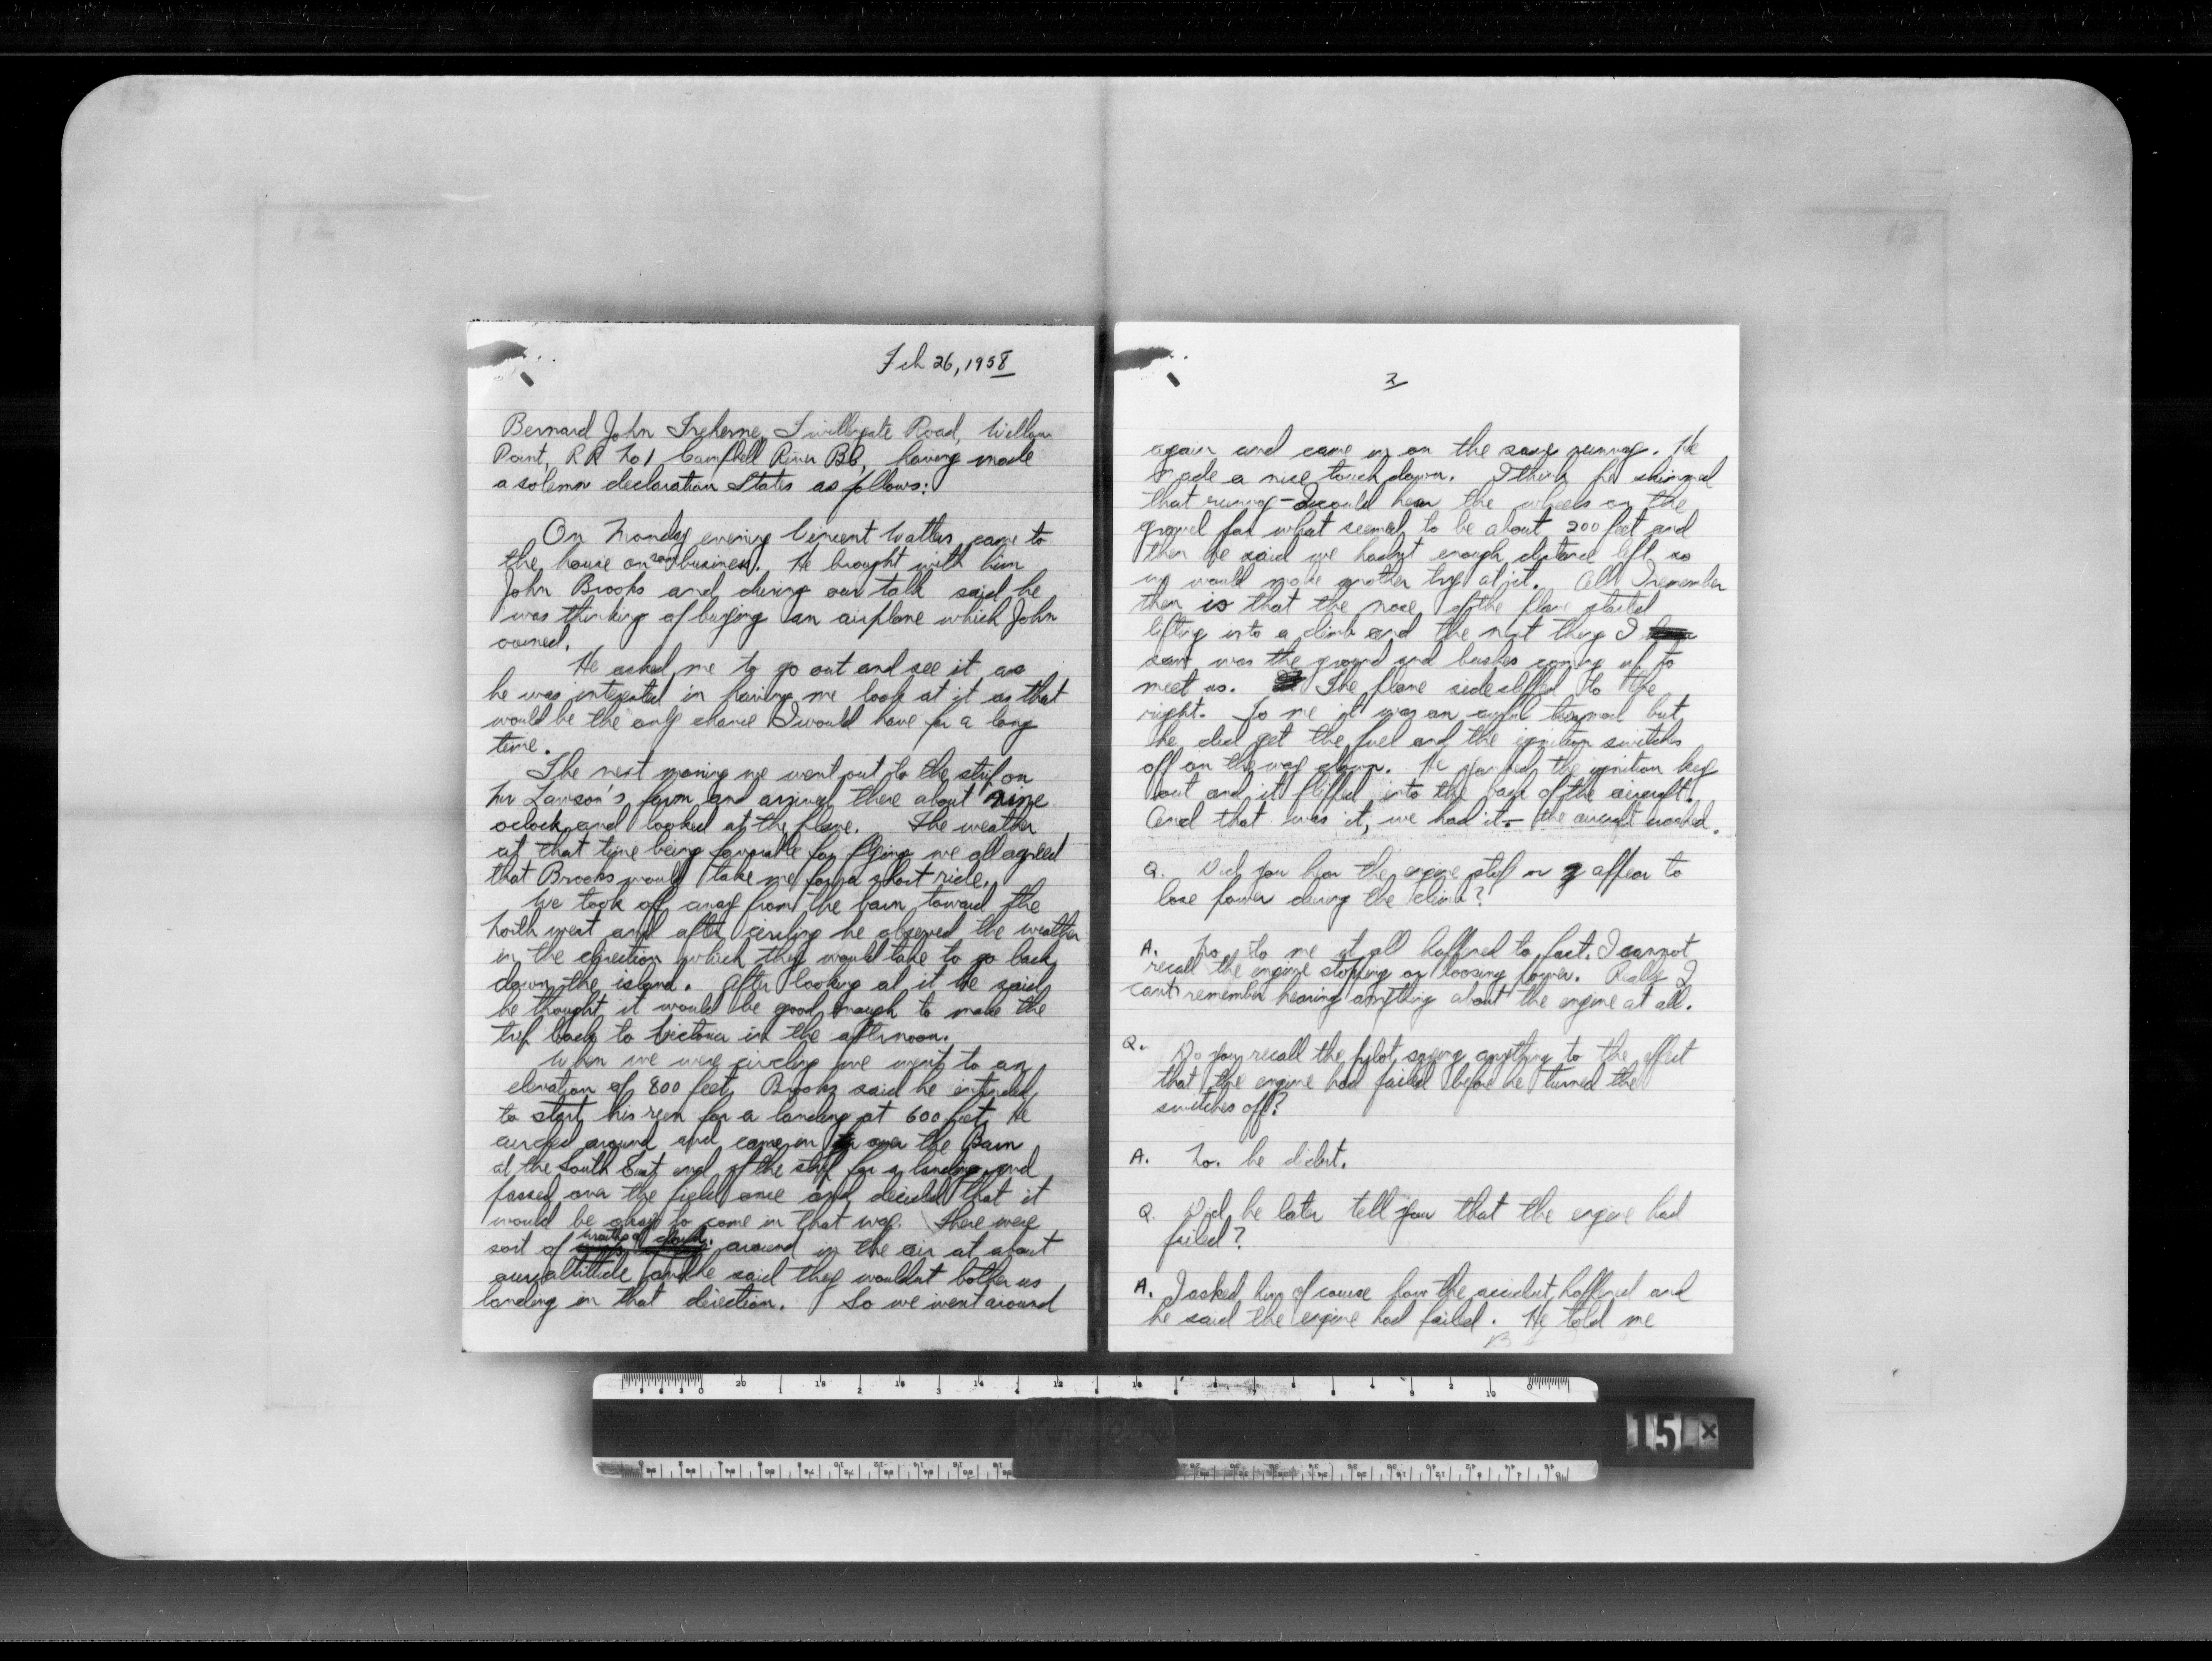 Feb 26, 1958
Bernard John Treherne, Twillingate Road, Willow
Point, RR No 1 Campbell River BC, having made
a solemn declaration States as follows:
On Monday evening Vincent Watters came to
the house on some business. He brought with him
John Brooks and during our talk said he
was thinking of buying an airplane which John
owned.
He asked me to go out and see it as
he was interested in having me look at it as that
would be the only chance I would have for a long
time.
The next morning we went out to the strip on
Mr Lawson's farm and arrived there about nine
oclock and looked at the plane. The weather
at that time being favorable for flying we all agreed
that Brooks would take me for a short ride.
We took off away from the barn toward the
North west and after circling he observed the weather
in the direction which they would take to go back
down the island. After looking at it he said
he thought it would be good enough to make the
trip back to Victoria in the afternoon.
When we were circling we went to an
elevation of 800 feet. Brooks said he intended
to start his run for a landing at 600 feet. He
circled around and came in over the Barn
at the South East end of the strip for a landing and
passed over the field once and decided that it
would be okay to come in that way. There were
sort of wreaths of cloud around in the air at about
our altitude and he said they wouldnt bother us
landing in that direction. So we went around
2
again and came in on the same runway. He
made a nice touch down. I think he skimmed
that runway - I could hear the wheels on the
gravel for what seemed to be about 200 feet and
then he said we hadnt enough distance left so
we would make another try at it. All I remember
then is that the nose of the plane started
lifting into a climb and the next thing I
saw was the ground and bushes coming up to
meet us. The plane sideslipped to the
right. To me it was an awful turmoil but
he did get the fuel and the ignition switches
off on the way down. He yanked the ignition key
out and it flipped into the back of the aircraft.
And that was it, we had it - the aircraft crashed.
Q. Did you hear the engine stop or appear to
lose power during the climb?
A. No, to me it all happened to fast. I cannot
recall the engine stopping or loosing power. Really I
cant remember hearing anything about the engine at all.
Q. Do you recall the pilot saying anything to the effect
that the engine had failed before he turned the
switches off?
A. No. he didnt.
Q. Did he later tell you that the engine had
failed?
A. I asked him of course how the accident happened and
he said the engine had failed. He told me
15 x